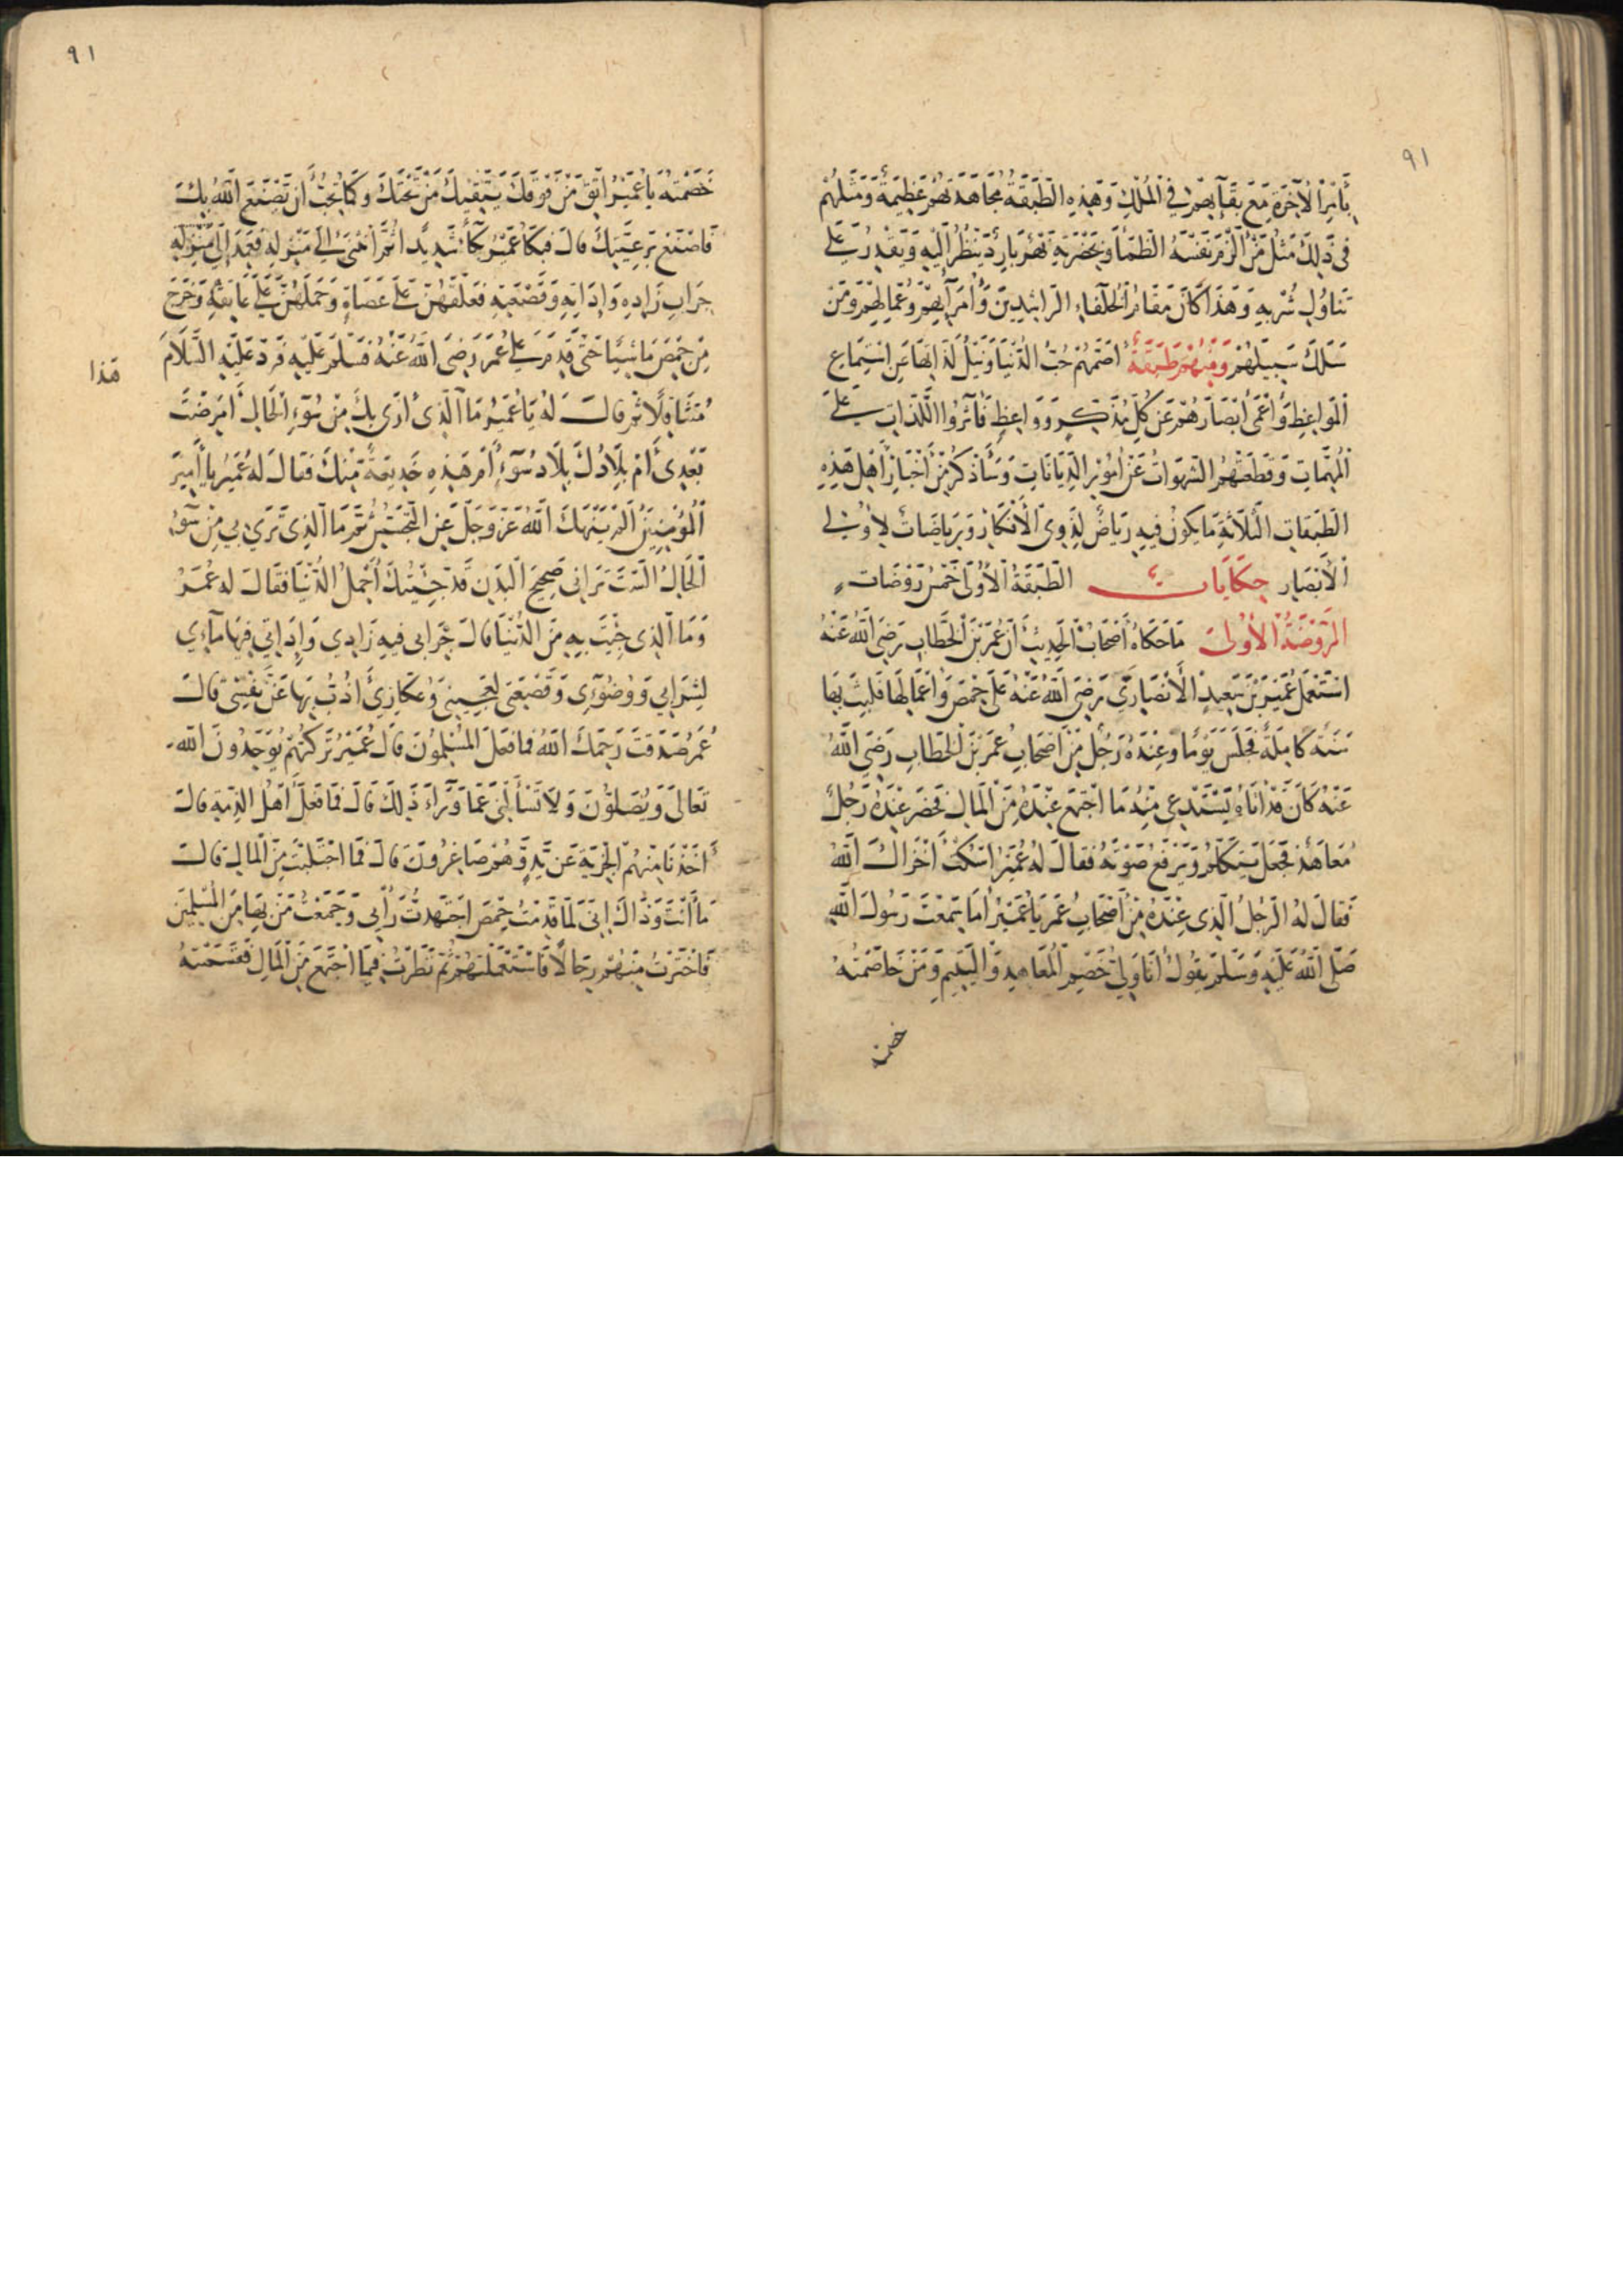 ٩١
بأمر الآخرة مع بقائهم في الملك وهذه الطبقة مجاهدتهم عظيمة ومثلهم
في ذلك مثل من ألزم نفسه الظمأ وبحضرته نهر بارد ينظر إليه ويقدر على
تناول شربه وهذا كان مقام الخلفاء الراشدين وأمرائهم وعمالهم ومن
سلك سبيلهم ومنهم طبقة أصمهم حب الدنيا ونيل لذاتها عن استماع
المواعظ وأعمى أبصارهم عن كل مذكر وواعظ فآثروا اللذات على
المهمات وقطعتهم الشهوات عن أمور الديانات وسأذكر من أخبار أهل هذه
الطبقات الثلاثة ما يكون فيه رياض لذوي الأفكار ورياضات لأولي
الأبصار حكايات الطبقة الأولى خمس روضات
الروضة الأولى ما حكاه أصحاب الحديث أن عمر بن الخطاب رضي الله عنه
استعمل عمير بن سعيد الأنصاري رضي الله عنه على حمص وأعمالها فلبث بها
سنة كاملة فجلس يوما وعنده رجل من أصحاب عمر بن الخطاب رضي الله
عنه كان قد أتاه يستدعي منه ما اجتمع عنده من المال فحضر عنده رجل
معاهد فجعل يتكلم ويرفع صوته فقال له عمير اسكت أخزاك الله
فقال له الرجل الذي عنده من أصحاب عمر يا عمير أما سمعت رسول الله
صلى الله عليه وسلم يقول أنا ولي خصم المعاهد واليتيم ومن خاصمته
٩١
خصمته يا عمير اتق من فوقك يتقيك من تحتك وكما تحب أن تصنع الله بك
فاصنع برعيتك قال فبكا عمير بكاء شديدا ثم أتى إلى منزله فعمد إلى منزله
جراب زاده وإداته وقصعته فعلقهن على عصاة وحملهن على عاتقه وخرج
من حمص ماشيا حتى قدم على عمر رضي الله عنه فسلم عليه فرد عليه السلام
متثاقلا ثم قال له يا عمير ما الذي أرى بك من سوء الحال أمرضت
هذا
بعدي أم بلادك بلاد سوء أم هذه خديعة منك فقال له عمير يا أمير
المؤمنين ألم ينهك الله عز وجل عن التجسس ثم ما الذي ترى بي من سوء
الحال ألست تراني صحيح البدن قد جئتك أحمل الدنيا فقال له عمر
وما الذي جئت به من الدنيا قال جرابي فيه زادي وإداتي فيها مائي
لشرابي ووضوئي وقصعتي لعجيني وعكازي أذب بها عن نفسي قال
عمر صدقت رحمك الله فما فعل المسلمون قال عمير تركتهم يوحدون الله
تعالى ويصلون ولا تسألني عما وراء ذلك قال فما فعل أهل الذمة قال
أخذنا منهم الجزية عن يد وهم صاغرون قال فما اجتلبت من المال قال
ما أنت وذاك إني لما قدمت حمص اجتهدت رأيي وجمعت من بها من المسلمين
فاخترت منهم رجالا فاستعملتهم ثم نظرت فيما اجتمع من المال فقسمته